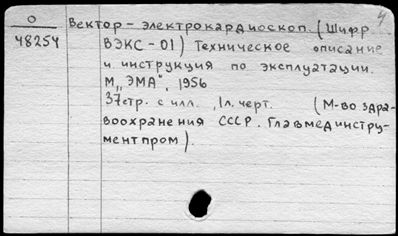 О
48254
Вектор – электрокардиоскоп. (Шифр
ВЭКС – 01) Техническое описание
и инструкция по эксплуатации.
М, „ЭМА", 1956
37стр. с илл., 1л. черт. (М-во здра-
воохранения СССР. Главмединстру-
ментпром).